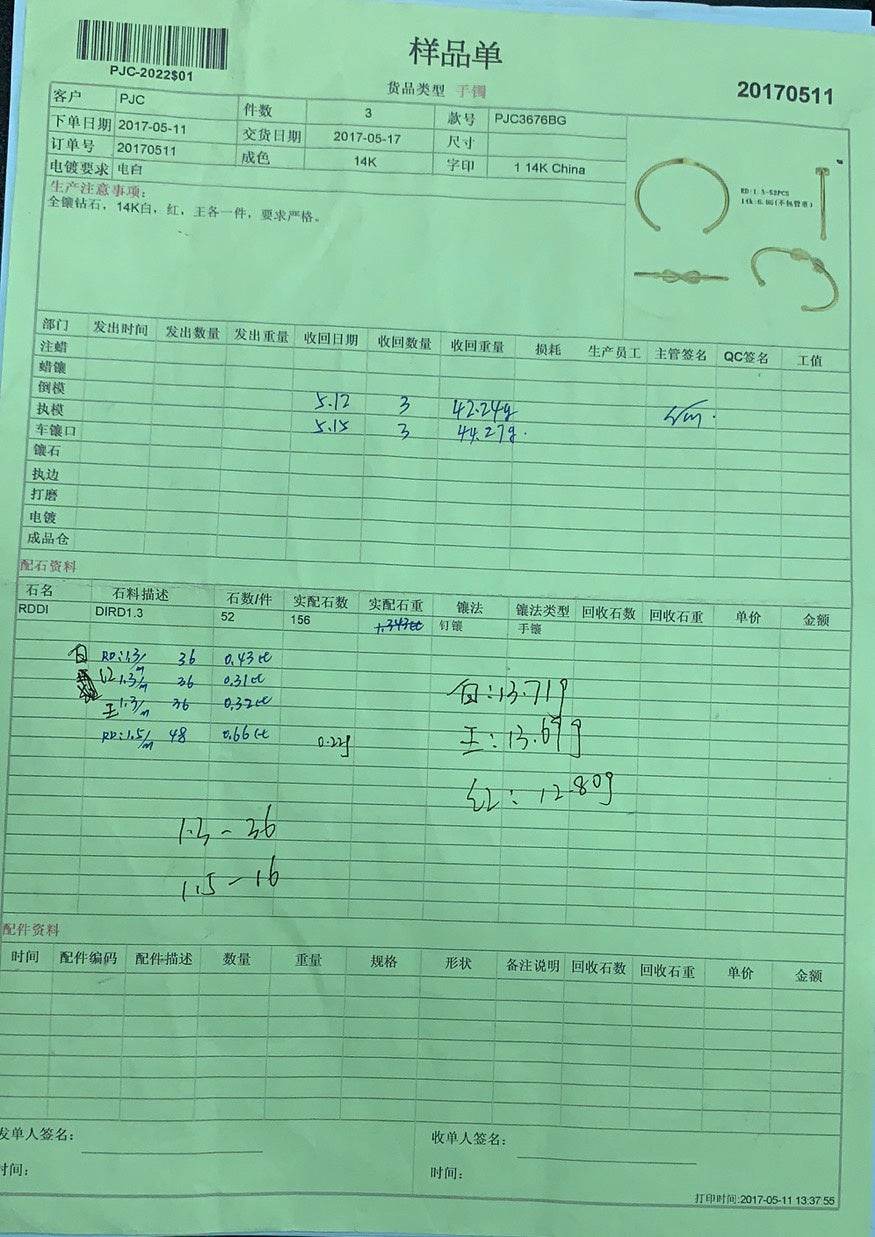 样品单
PJC-2022$01
货品类型 手镯
20170511
客户 PJC 件数 3 款号 PJC3676BG
下单日期 2017-05-11 交货日期 2017-05-17 尺寸
订单号 20170511 成色 14K 字印 1 14K China
电镀要求 电白
生产注意事项:
全镶钻石，14K白，红，王各一件，要求严格。
RD:1.3-52PCS
14k:6.0G(不包管重)
部门 发出时间 发出数量 发出重量 收回日期 收回数量 收回重量 损耗 生产员工 主管签名 QC签名 工值
注蜡
蜡镶
倒模
执模 5.12 3 42.24g
车镶口 5.15 3 44.27g.
镶石
执边
打磨
电镀
成品仓
配石资料
石名 石料描述 石数/件 实配石数 实配石重 镶法 镶法类型 回收石数 回收石重 单价 金额
RDDI DIRD1.3 52 156 1.343ct 钉镶 手镶
白 RD:1.3/m 36 0.43ct
红 1.3/m 36 0.31ct
王 1.3/m 36 0.32ct
RD:1.5/m 48 0.66ct 0.22g
白:13.71g
王:13.69g
红:12.80g
1.3-36
1.5-16
配件资料
时间 配件编码 配件描述 数量 重量 规格 形状 备注说明 回收石数 回收石重 单价 金额
发单人签名: 收单人签名:
时间: 时间:
打印时间:2017-05-11 13:37:55